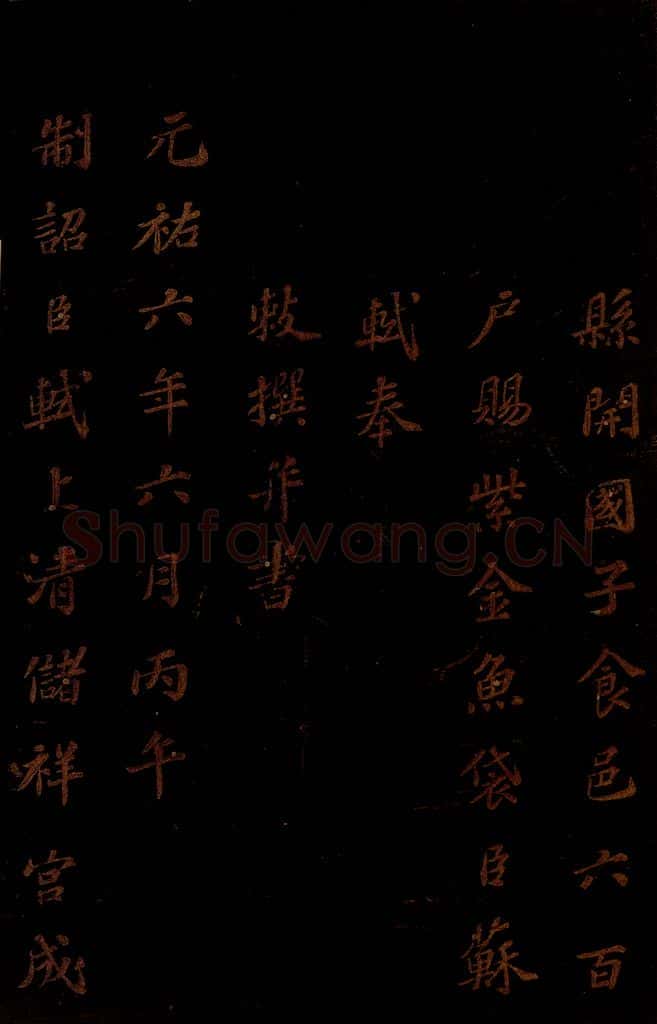 縣開國子食邑六百
户賜紫金魚袋臣蘇
軾奉
敕撰并書
元祐六年六月丙午
制詔臣軾上清儲祥宮成
Shufawang.CN